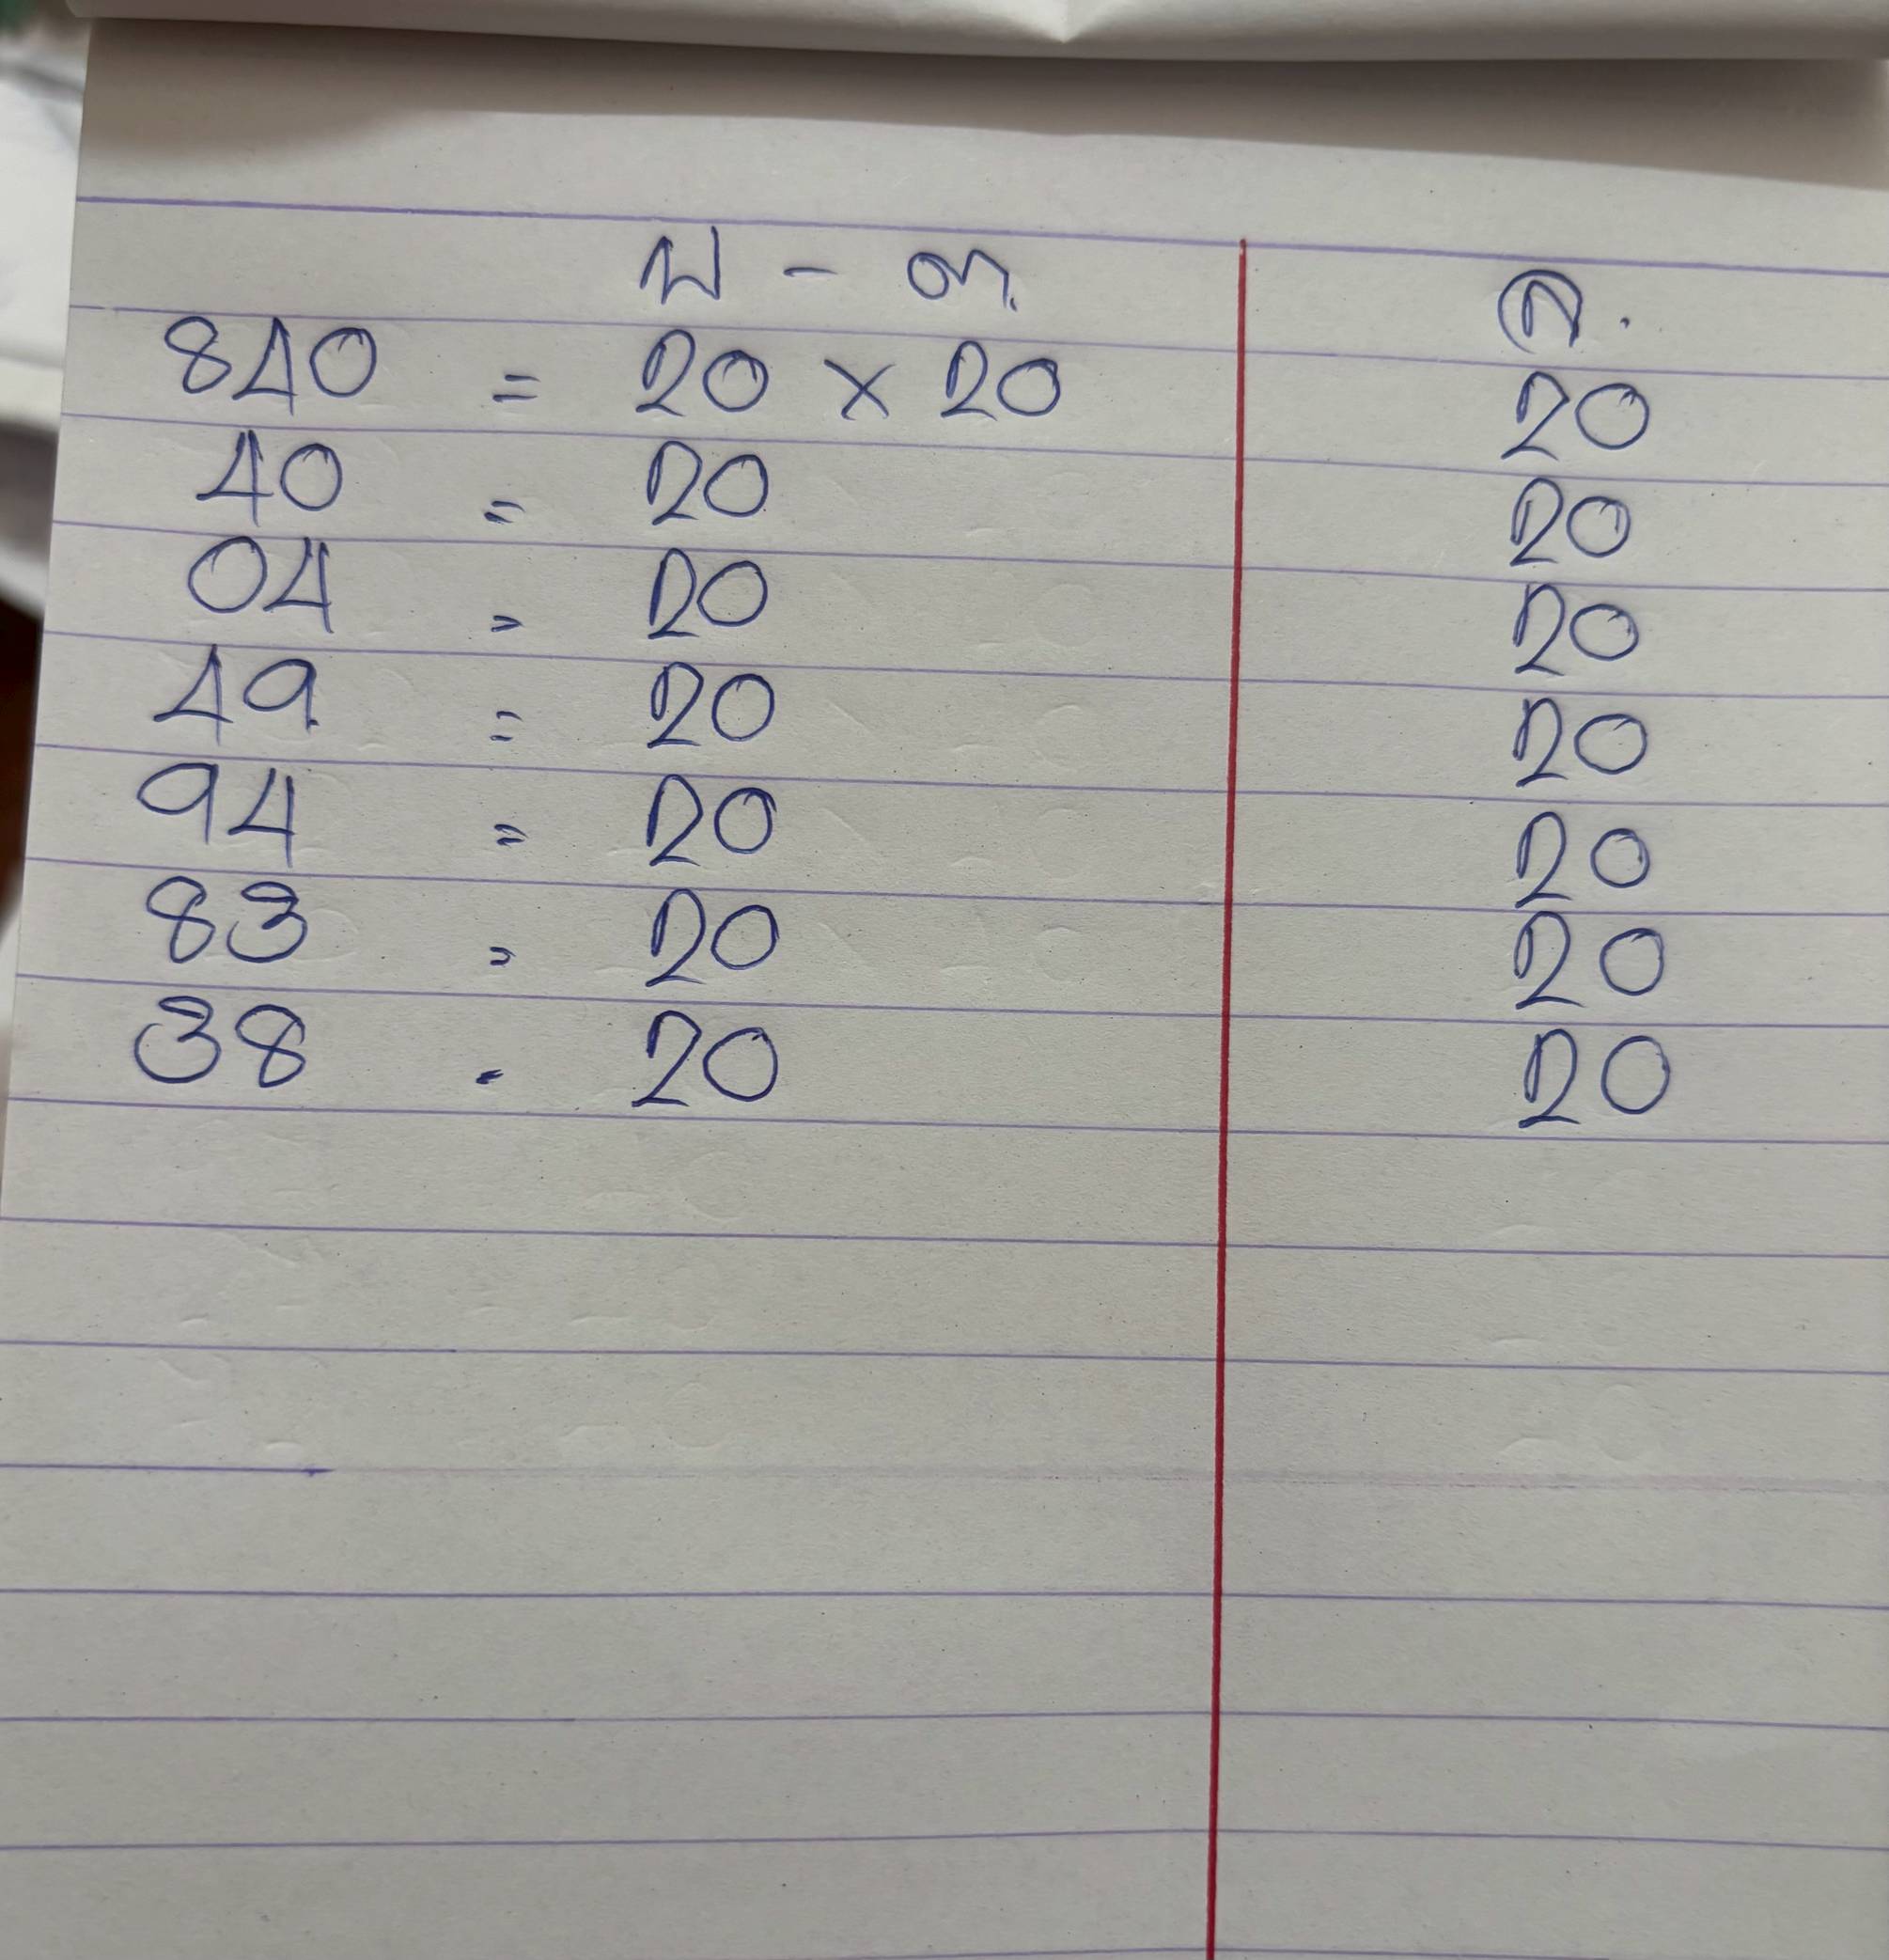 บ - ต. ล.
840 = 20 × 20 20
40 = 20 20
04 = 20 20
49 = 20 20
94 = 20 20
83 = 20 20
38 - 20 20